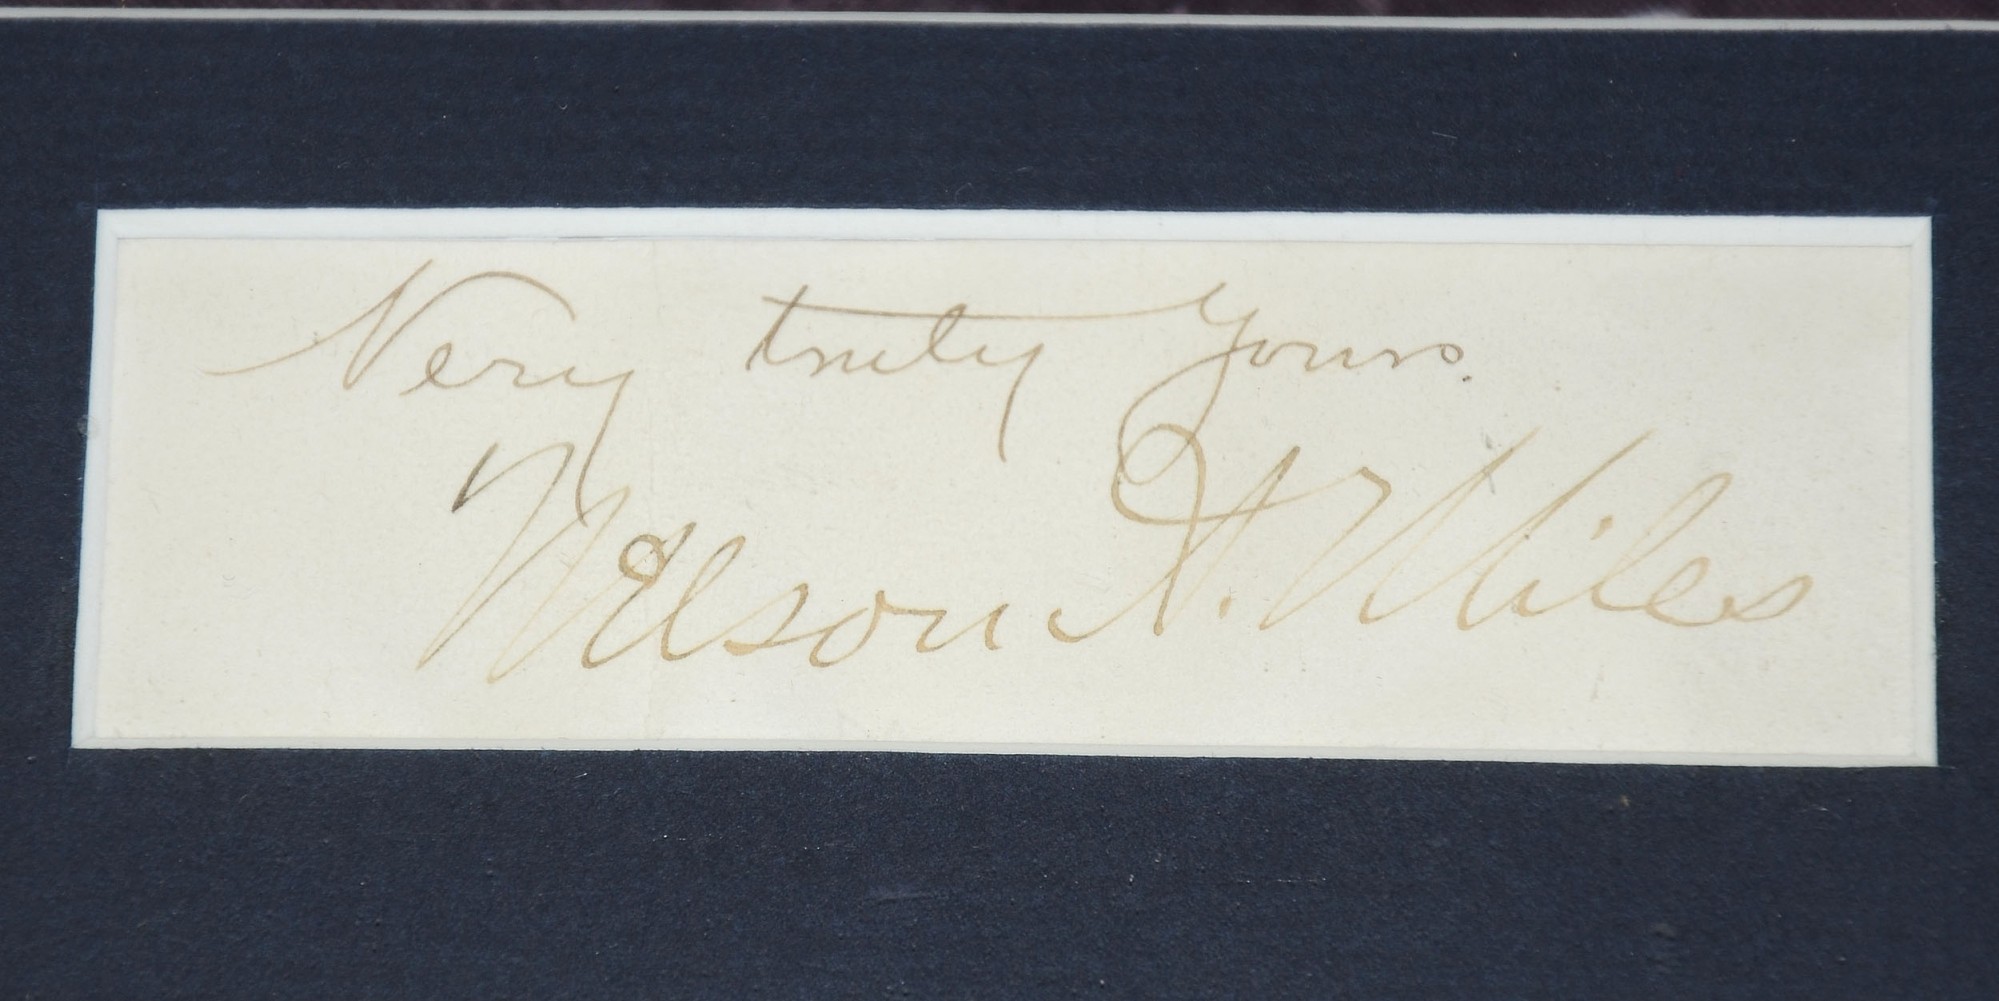 Very truly yours.
Nelson A. Miles